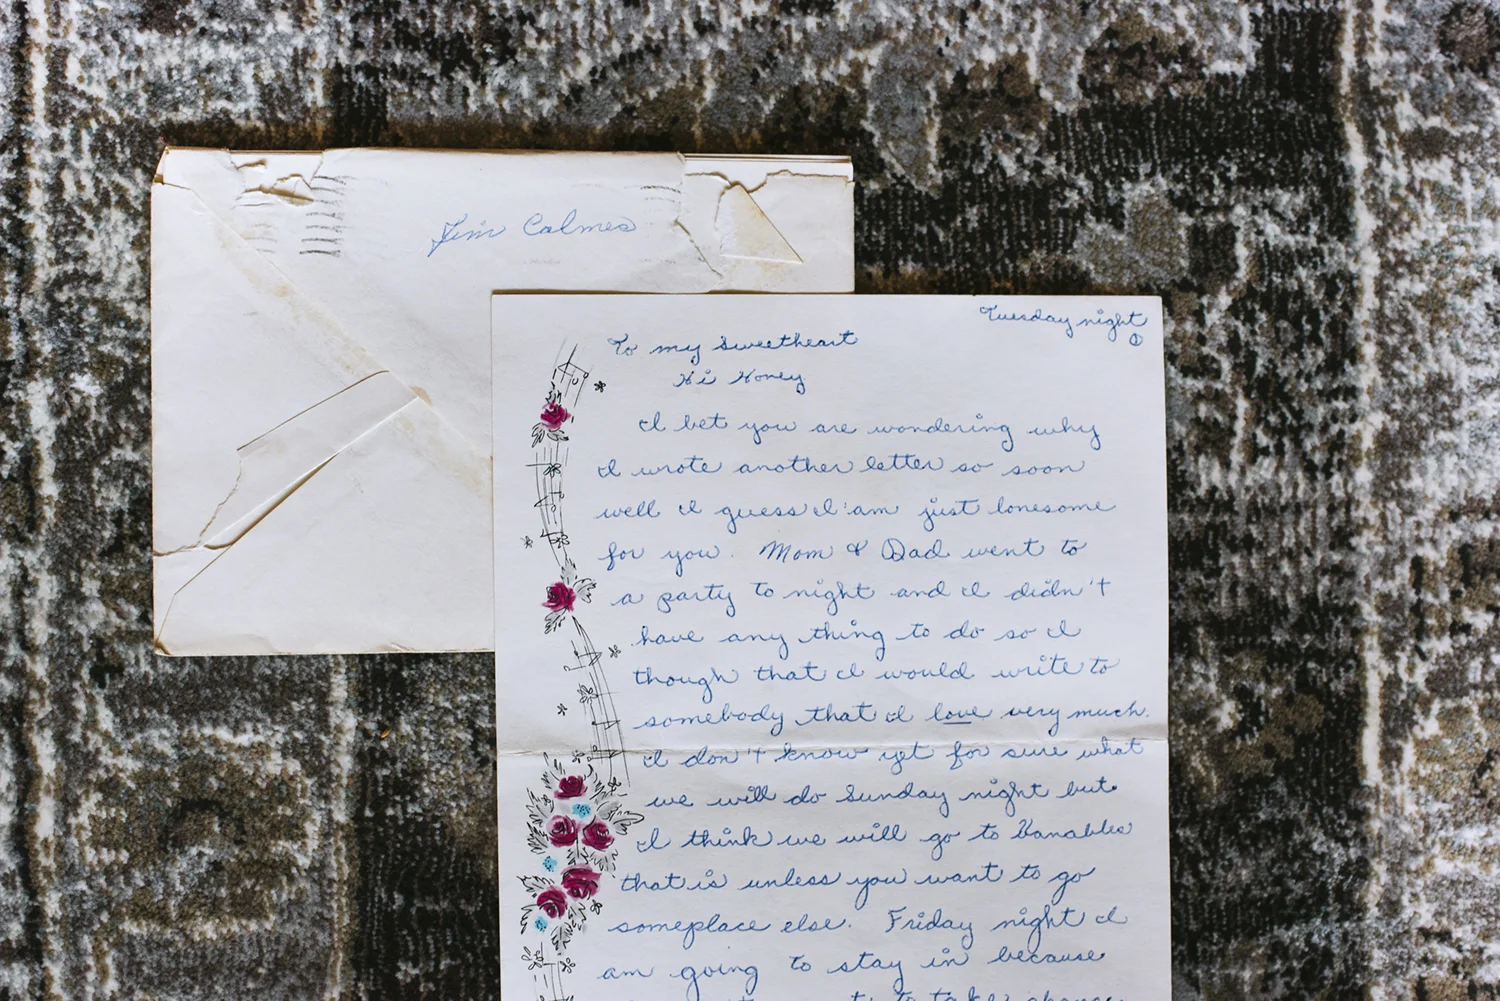 Jim Calmes
Tuesday night
①
To my sweetheart
Hi Honey
I bet you are wondering why
I wrote another letter so soon
well I guess I am just lonesome
for you. Mom & Dad went to
a party to night and I didn't
have any thing to do so I
though that I would write to
somebody that I love very much.
I don't know yet for sure what
we will do Sunday night but
I think we will go to
that is unless you want to go
someplace else. Friday night I
am going to stay in because
to take